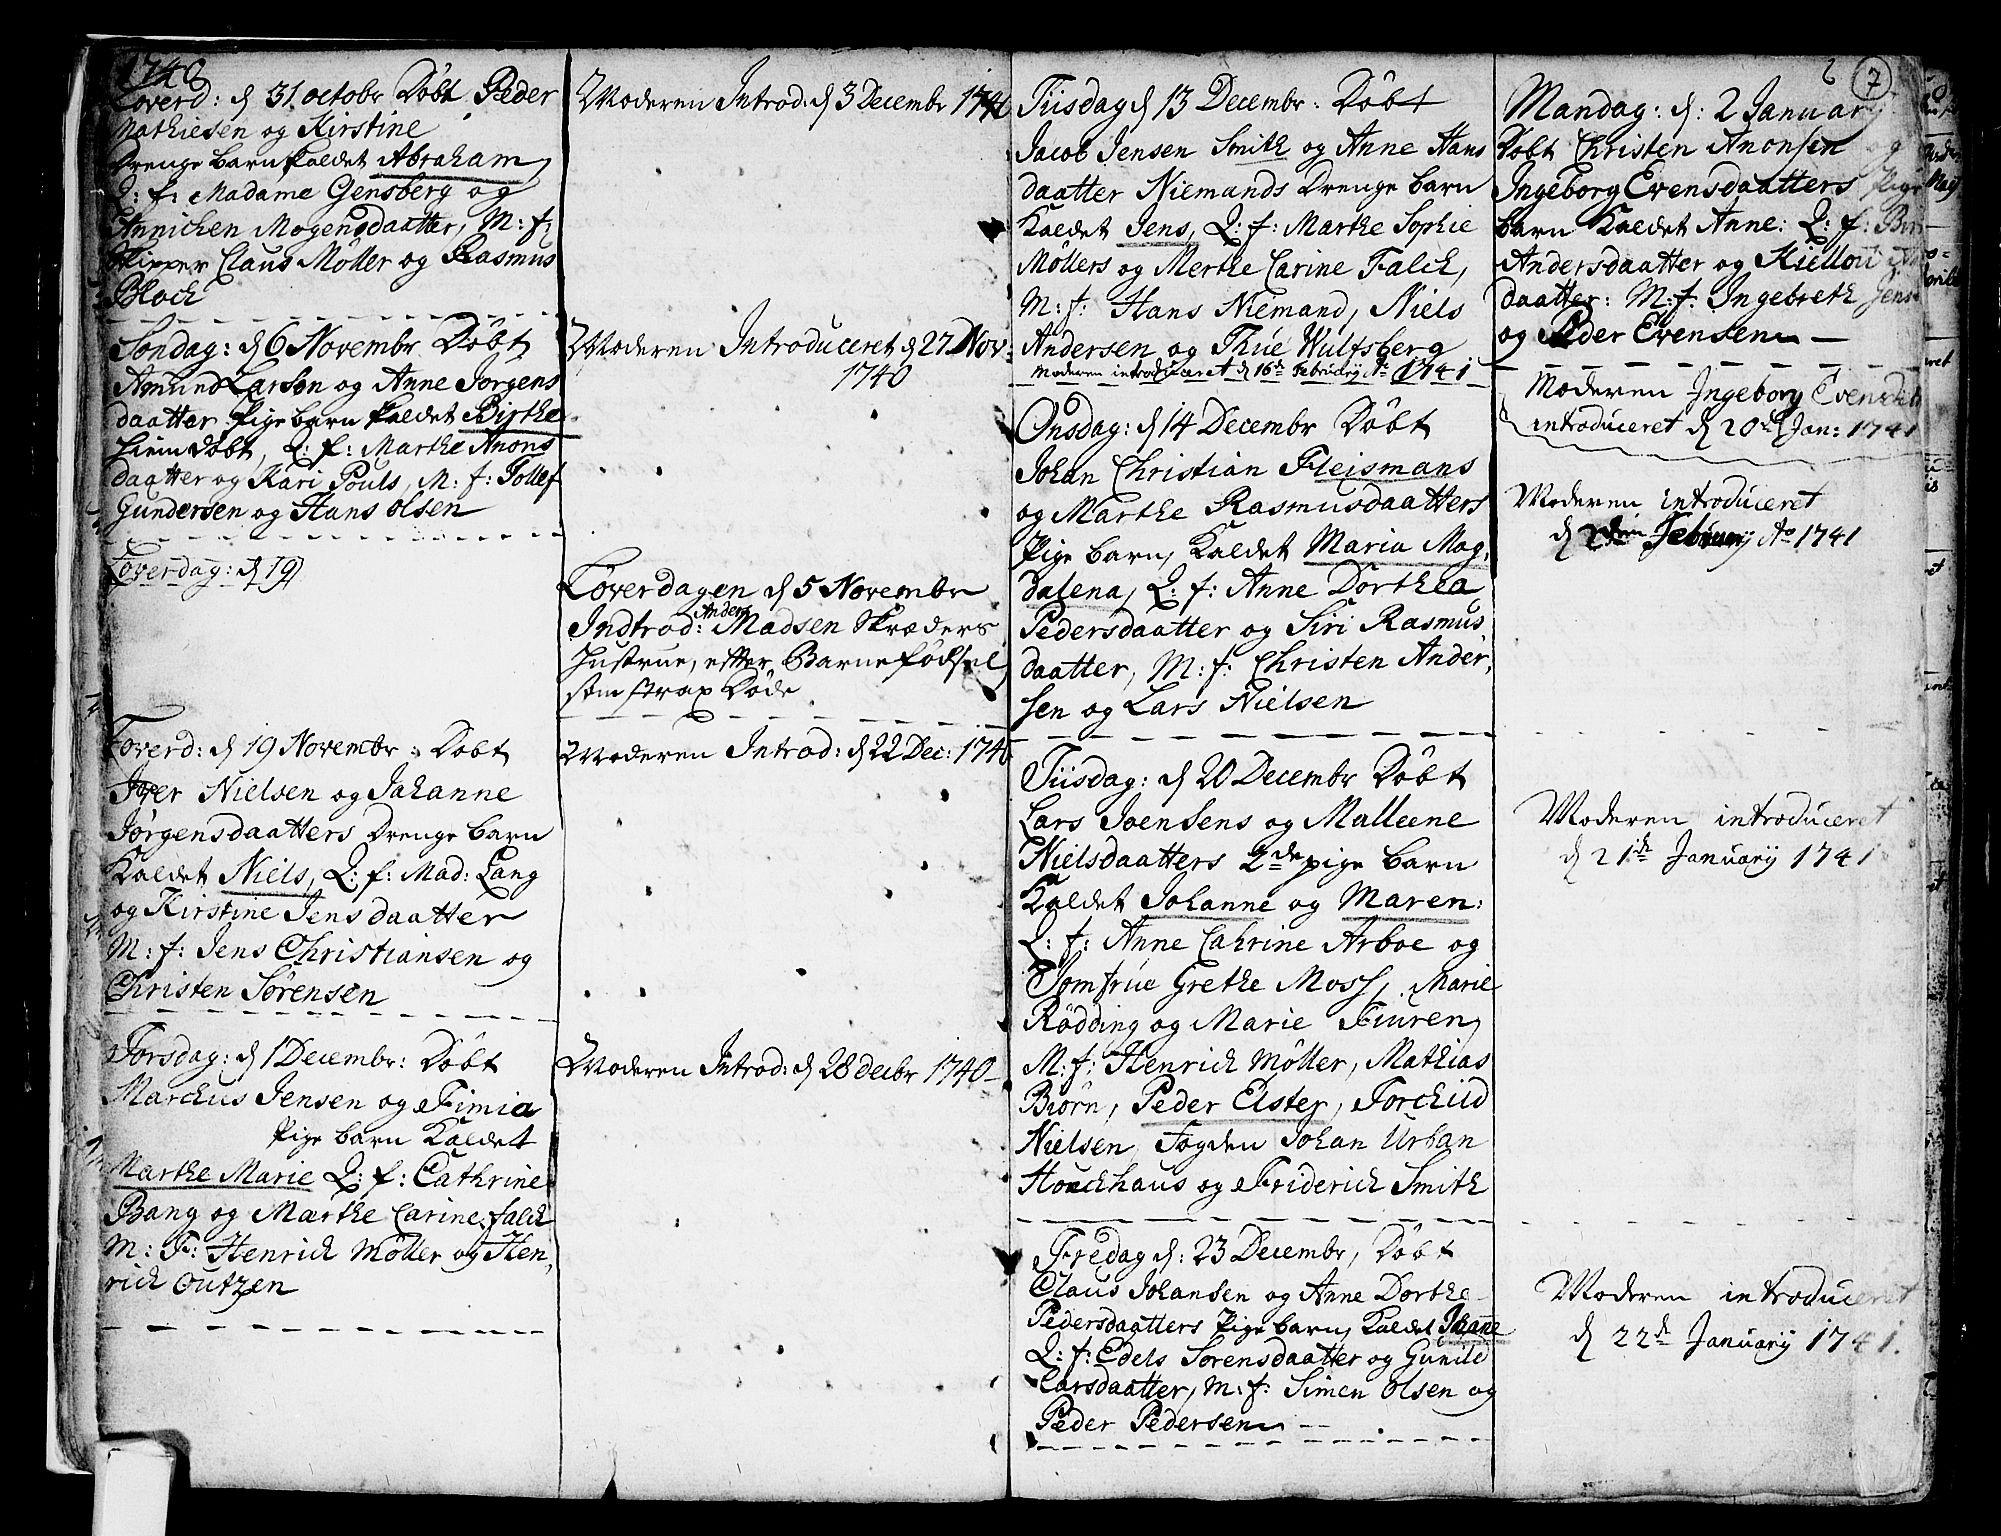 1740
Löverd: d 31. octobr Döbt Peder
Mathiesen og Kirstine
Drenge barn kaldet Abraham,
Q: f: Madame Gensberg og
Annichen Mogensdaatter, M: f:
Skipper Claus Möller og Rasmus
Block
Söndag: d 6 Novembr Döbt
Amund Larsön og Anne Jörgens
daatter Pige barn kaldet Birthe
hiemdöbt, Q: f: Marthe Anons
daatter og Kari Pouls, M: f: Tollef
Gundersen og Hans olsen
Löverdag: d 19
Löverd: d 19 Novembr Döbt
Iver Nielsen og Johanne
Jörgensdaatters Drenge barn
Kaldet Niels, Q: f: Mad: Lang
og Kirstine Jens daatter
M: f: Jens Christiansen og
Christen Sörensen
Torsdag: d 1 Decembr: Döbt
Marchus Jensen og Fimia
Pige barn Kaldet
Marthe Marie Q: f: Cathrine
Bang og Marthe Carine falch
M: F: Henrich Möller og Hen,
rich Outzen
Moderen Introd: d 3 Decembr 1740
Moderen Introduceret d 27 Nov:
1740
Löverdagen d 5 Novembr
Indtrod: Anders Madsen Skræders
Hustrue, efter Barnefödsel
som strax döde
Moderen Introd: d 22 Dec: 1740
Moderen Introd: d 28 decbr 1740
Tiisdag d 13 Decembr: Döbt
Jacob Jensen Smith og Anne Hans
daatter Niemands Drenge barn
Kaldet Jens, Q: f: Marthe Sophie
Möllers og Merthe Carine Falch,
M: f: Hans Niemand, Niels
Andersen og Thue Wulfsberg
Moderen introduceret d 16de Februarij Ao 1741
Onsdag: d 14 Decembr Döbt
Johan Christian Fleismans
og Marthe Rasmusdaatters
Pige barn, Kaldet Maria Mag,
dalena, Q: f: Anne Dorthea
Pedersdaatter og Siri Rasmus
daatter, M: f: Christen Ander,
sen og Lars Nielsen
Tiisdag: d 20 Decembr Döbt
Lars Joensens og Malleene
Nielsdaatters 2de pige barn
Kaldet Johanne og Maren:
Q: f: Anne Cahrine Arboe og
Jomfrue Grethe Moss, Marie
Rödding og Marie Fiuren,
M: f: Henrich Möller, Mathias
Biörn, Peder Elster, Torchild
Nielsen, Fogden Johan Urban
Houchhaus og Friderich Smith
Fredag d: 23 Decembr, Döbt
Claus Johansen og Anne Dorthe
Pedersdaatters Pige barn, Kaldet Johane
Q: f: Edels Sorensdaatter og Gunild
Larsdaatter, M: f: Simen olsen og
Peder Pedersen
7
Mandag: d: 2 Januarij
Döbt Christen Anonsen og
Ingeborg Evensdaatters Pige
barn Kaldet Anne: Q: f:
Andersdaatter og Kiellou
daatter: M: f: Ingebreth Jens
og Peder Evensen
Moderen Ingeborg Evensd
introduceret d 20de Jan: 1741
Moderen introduceret
d Februarij Ao 1741
Moderen introduceret
d 21de Januarij 1741
Moderen introduceret
d 22de Januarij 1741.